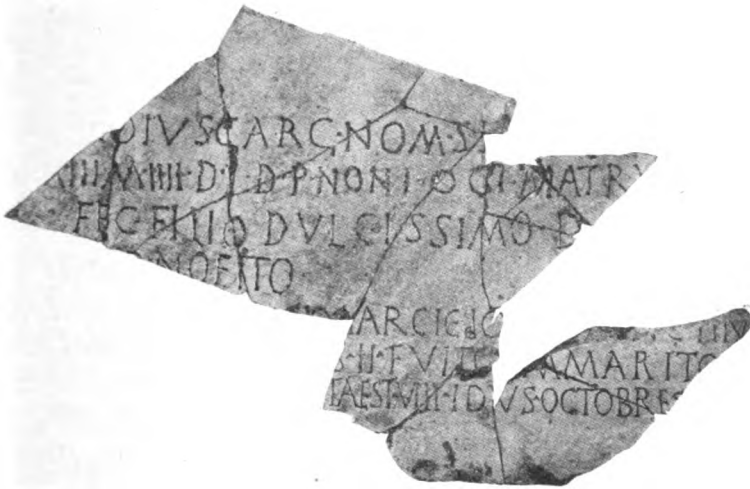 DIVSCARC·NOM·S
III·M·IIII·D· D·P·NONI·OCT·MATR
FEC·FILIO DVLCISSIMO
NOFITO
ARCIE
S·II·FVIT MARITO
TAEST·VIII·IDVS·OCTOBRES